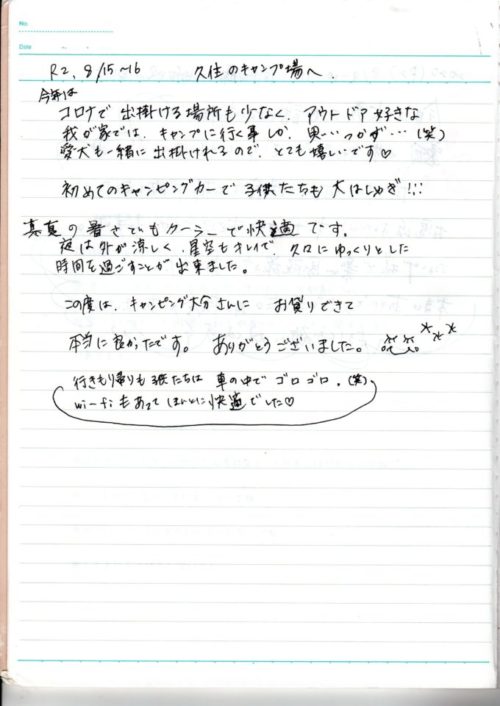 No.
Date
R2, 8/15~16 久住のキャンプ場へ.
今年は
コロナで 出掛ける場所も少なく、アウトドア好きな
我が家では、キャンプに行く事しか、思いつかず…(笑)
愛犬も一緒に出掛けれるので、とても嬉しいです♡
初めてのキャンピングカーで子供たちも 大はしゃぎ!!!
真夏の暑さでもクーラーで快適です。
夜は外が涼しく、星空もキレイで、久々にゆっくりとした
時間を過ごすことが出来ました。
この度は、キャンピング大分さんに お貸りできて
本当に良かったです。ありがとうございました。
行きも帰りも子供たちは 車の中でゴロゴロ。(笑)
wi-fiもあって ほんとに快適でした♡